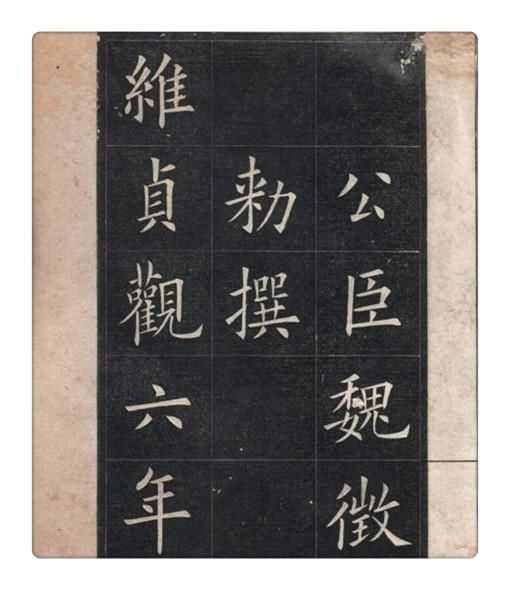 公臣魏徵
勑撰
維貞觀六年